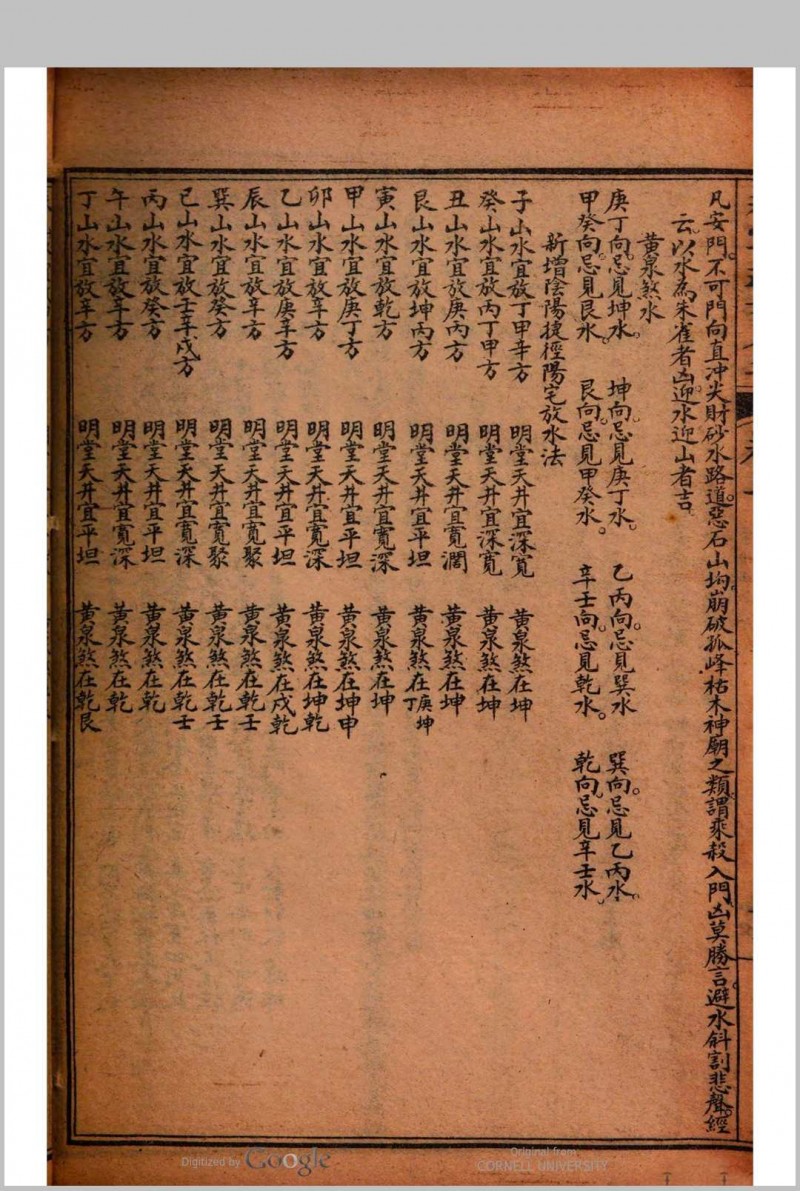 凡安門。不可門向直冲尖財砂水路道。惡石山均。崩破孤峰枯木神廟之類。謂乘殺入門凶莫勝言。避水斜割悲聲。經
云。以水為朱雀者凶。迎水迎山者吉。
黃泉煞水
庚丁向。忌見坤水。 坤向。忌見庚丁水。 乙丙向。忌見巽水 巽向。忌見乙丙水。
甲癸向。忌見艮水。 艮向。忌見甲癸水。 辛壬向。忌見乾水。 乾向。忌見辛壬水。
新增陰陽捷徑陽宅放水法
子山水宜放丁甲辛方 明堂天井宜深寬 黃泉煞在坤
癸山水宜放丙丁甲方 明堂天井宜深寬 黃泉煞在坤
丑山水宜放庚丙方 明堂天井宜寬濶 黃泉煞在坤
艮山水宜放坤丙方 明堂天井宜平坦 黃泉煞在丁庚坤
寅山水宜放乾方 明堂天井宜寬深 黃泉煞在坤
甲山水宜放庚丁方 明堂天井宜平坦 黃泉煞在坤申
卯山水宜放辛方 明堂天井宜寬深 黃泉煞在坤乾
乙山水宜放庚辛方 明堂天井宜平坦 黃泉煞在戌乾
辰山水宜放辛方 明堂天井宜寬聚 黃泉煞在乾壬
巽山水宜放癸方 明堂天井宜寬聚 黃泉煞在乾壬
巳山水宜放壬辛戌方 明堂天井宜寬深 黃泉煞在乾壬
丙山水宜放癸方 明堂天井宜平坦 黃泉煞在乾
午山水宜放辛方 明堂天井宜寬深 黃泉煞在乾
丁山水宜放辛方 明堂天井宜平坦 黃泉煞在乾艮
Digitized by Google
Original from
CORNELL UNIVERSITY